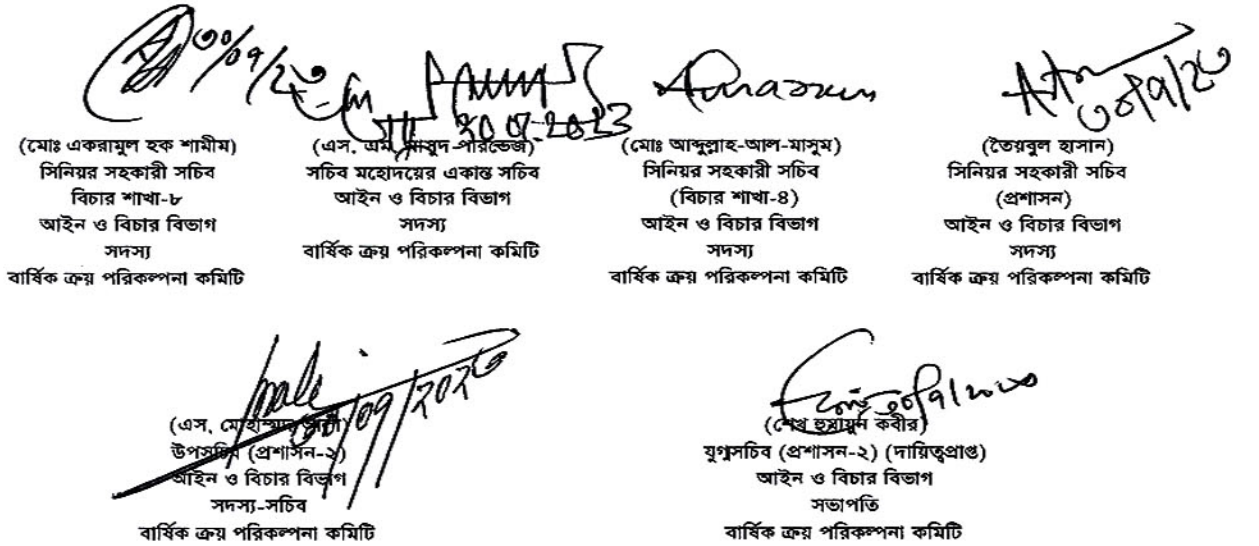 ৩০/০৭/২৩
30.07.2023
৩০/৭/২৩
(মোঃ একরামুল হক শামীম)
সিনিয়র সহকারী সচিব
বিচার শাখা-৮
আইন ও বিচার বিভাগ
সদস্য
বার্ষিক ক্রয় পরিকল্পনা কমিটি
(এস. এম. মাসুদ পারভেজ)
সচিব মহোদয়ের একান্ত সচিব
আইন ও বিচার বিভাগ
সদস্য
বার্ষিক ক্রয় পরিকল্পনা কমিটি
(মোঃ আব্দুল্লাহ-আল-মাসুম)
সিনিয়র সহকারী সচিব
(বিচার শাখা-৪)
আইন ও বিচার বিভাগ
সদস্য
বার্ষিক ক্রয় পরিকল্পনা কমিটি
(তৈয়বুল হাসান)
সিনিয়র সহকারী সচিব
(প্রশাসন)
আইন ও বিচার বিভাগ
সদস্য
বার্ষিক ক্রয় পরিকল্পনা কমিটি
৩০/০৭/২০২৩
(এস. মোহাম্মদ আলী)
উপসচিব (প্রশাসন-২)
আইন ও বিচার বিভাগ
সদস্য-সচিব
বার্ষিক ক্রয় পরিকল্পনা কমিটি
৩০/৭/২০২৩
(শেখ হুমায়ুন কবীর)
যুগ্মসচিব (প্রশাসন-২) (দায়িত্বপ্রাপ্ত)
আইন ও বিচার বিভাগ
সভাপতি
বার্ষিক ক্রয় পরিকল্পনা কমিটি